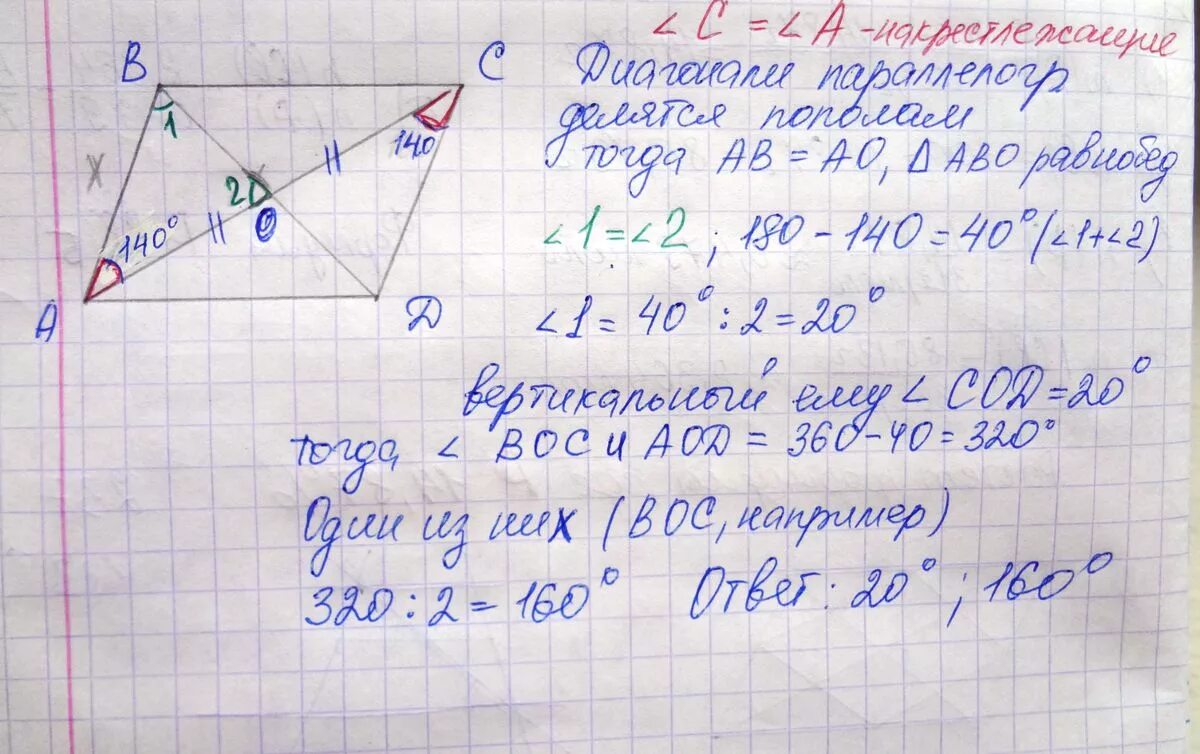 ∠C = ∠A -накрестлежащие
B
C
Диагонали параллелогр
делятся пополам
тогда AB = AO, ΔABO равнобед
1
140
X
2
O
140°
∠1=∠2 ; 180 - 140 = 40° (∠1+∠2)
A
D
∠1 = 40° : 2 = 20°
вертикальный ему ∠ COD = 20°
тогда ∠ BOC и AOD = 360-40 = 320°
Один из них (BOC, например)
320 : 2 = 160° Ответ: 20° ; 160°